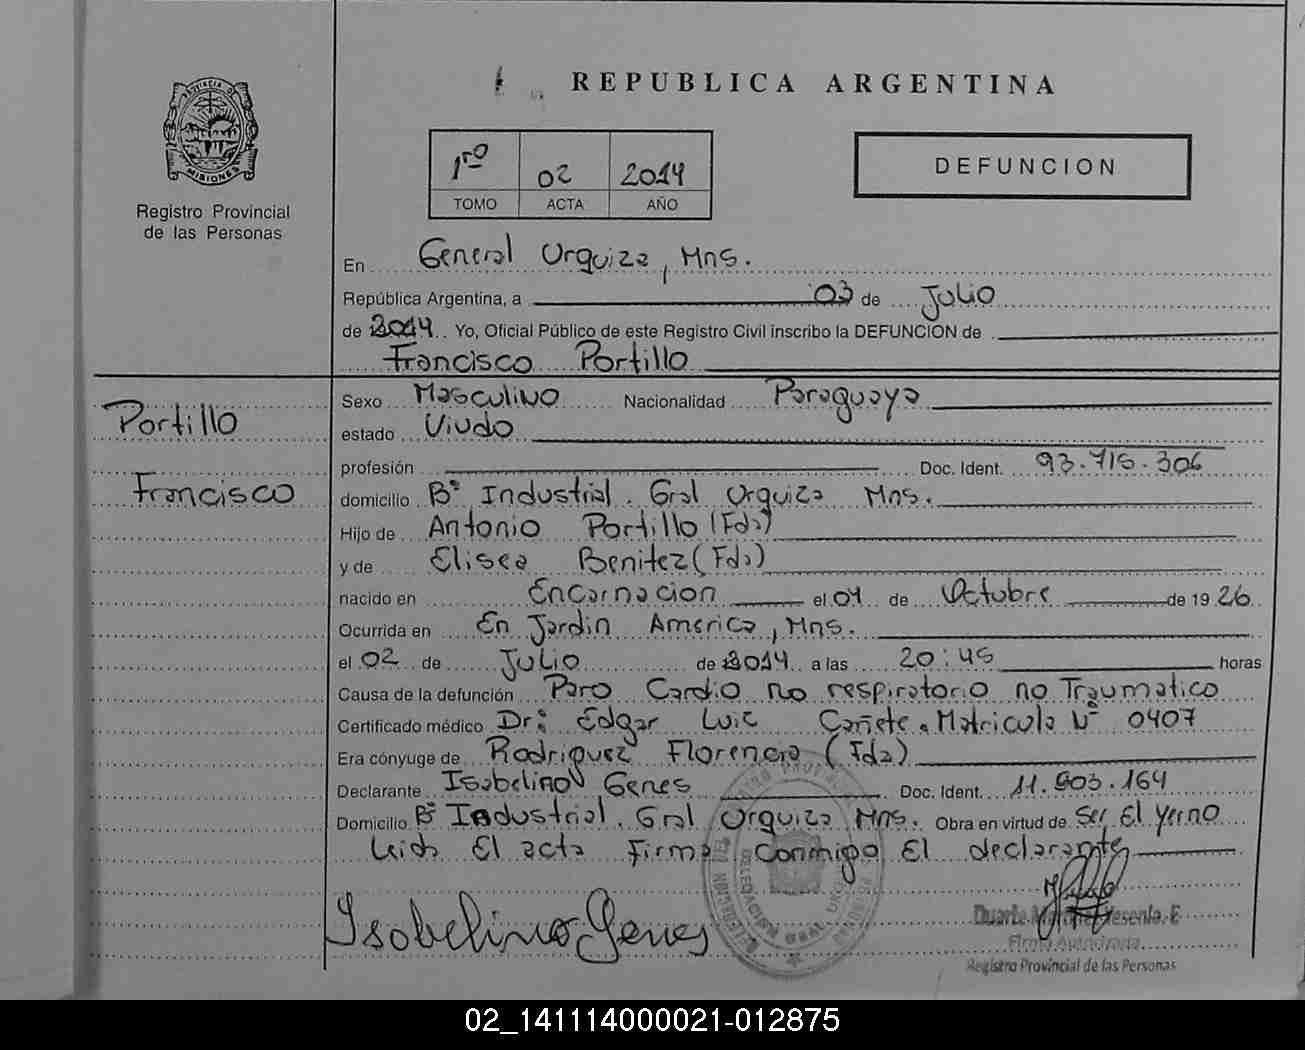 REPUBLICA ARGENTINA
PROVINCIA DE MISIONES
Registro Provincial
de las Personas
1ro 02 2014
TOMO ACTA AÑO
DEFUNCION
En General Urquiza, Mns.
República Argentina, a 03 de Julio
de 2014 Yo, Oficial Público de este Registro Civil inscribo la DEFUNCION de
Francisco Portillo
Portillo
Francisco
Sexo Masculino Nacionalidad Paraguaya
estado Viudo
profesión Doc. Ident. 93.715.306
domicilio Bº Industrial. Gral Urquiza Mns.
Hijo de Antonio Portillo (Fdo)
y de Elisea Benitez (Fda)
nacido en Encarnacion el 01 de Octubre de 1926
Ocurrida en En Jardin America, Mns.
el 02 de Julio de 2014 a las 20:45 horas
Causa de la defunción Paro Cardio no respiratorio no Traumatico
Certificado médico Dr: Edgar Luis Cañete. Matricula Nº 0407
Era cónyuge de Rodriguez Florencia (Fda)
Declarante Isabelino Genes Doc. Ident. 11.903.164
Domicilio Bº Industrial. Gral Urquiza Mns. Obra en virtud de Ser El Yerno
Leida El acta Firma conmigo El declarante
Isabelino Genes
Duarte Yesenia. E
Firma Autorizada
Registro Provincial de las Personas
02_141114000021-012875